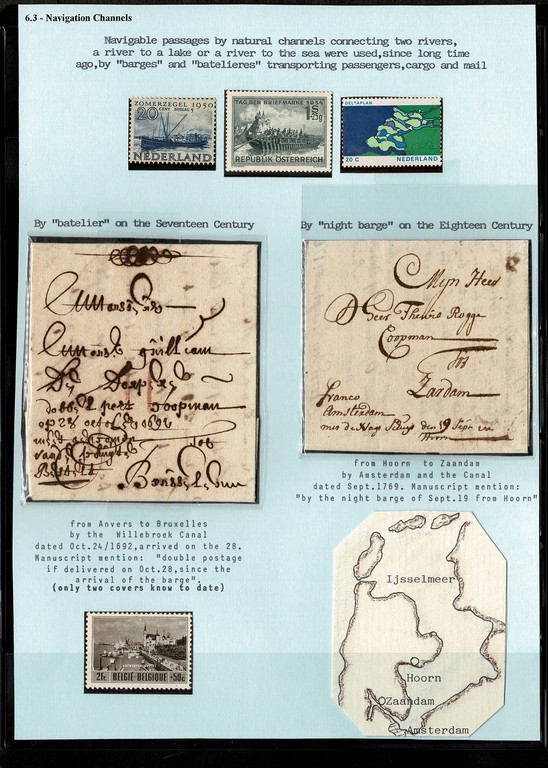 6.3 - Navigation Channels
Navigable passages by natural channels connecting two rivers,
a river to a lake or a river to the sea were used,since long time
ago,by "barges" and "batelieres" transporting passengers,cargo and mail
ZOMERZEGEL 1950
20 CENT
NEDERLAND
TAG DER BRIEFMARKE 1954
1S
+25g
REPUBLIK ÖSTERREICH
DELTAPLAN
20 C NEDERLAND
By "batelier" on the Seventeen Century
By "night barge" on the Eighteen Century
Mijn Heer
Heer Thewis Rogge
Coopman
tot
Zardam
franco
Amsterdam
met de Nagt Schuyt den 19 Sept
Coopman
tot
from Anvers to Bruxelles
by the Willebroek Canal
dated Oct.24/1692,arrived on the 28.
Manuscript mention: "double postage
if delivered on Oct.28,since the
arrival of the barge".
(only two covers know to date)
from Hoorn to Zaandam
by Amsterdam and the Canal
dated Sept.1769. Manuscript mention:
"by the night barge of Sept.19 from Hoorn"
2F BELGIE-BELGIQUE +50c
Ijsselmeer
Hoorn
Zaandam
Amsterdam